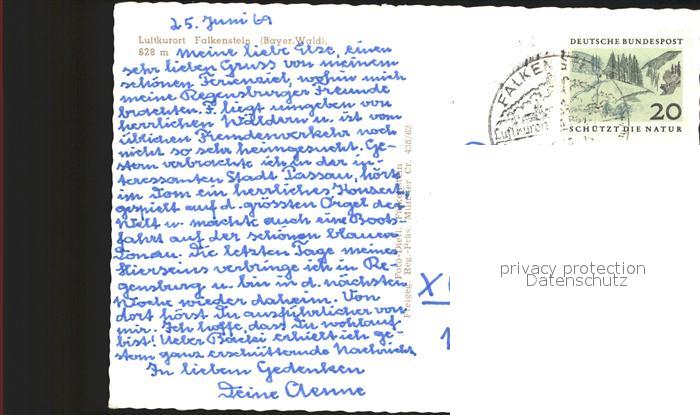 25. Juni 69
Luftkurort Falkenstein (Bayer. Wald),
628 m
Meine liebe Else, einen
sehr lieben Gruss von meinem
schönen Ferienziel, wohin mich
meine Regensburger Freunde
brachten. F. liegt umgeben von
herrlichen Wäldern u. ist vom
üblichen Fremdenverkehr noch
nicht so sehr heimgesucht. Ge-
stern verbrachte ich in der in-
teressanten Stadt Passau, hörte
im Dom ein herrliches Konzert,
gespielt auf d. grössten Orgel der
Welt u. machte auch eine Boots-
fahrt auf der schönen blauen
Donau. Die letzten Tage meines
Hierseins verbringe ich in Re-
gensburg u. bin in d. nächsten
Woche wieder daheim. Von
dort hörst Du ausführlicher von
mir. Ich hoffe, dass Du wohlauf
bist! Ueber erhielt ich ge-
stern ganz erschütternde Nachricht.
In liebem Gedenken
Deine Aenne
Freigeg. Reg.-Präs. Münster Cr. 438/62
DEUTSCHE BUNDESPOST
20
SCHÜTZT DIE NATUR
FALKEN
Luftkurort
X
privacy protection
Datenschutz